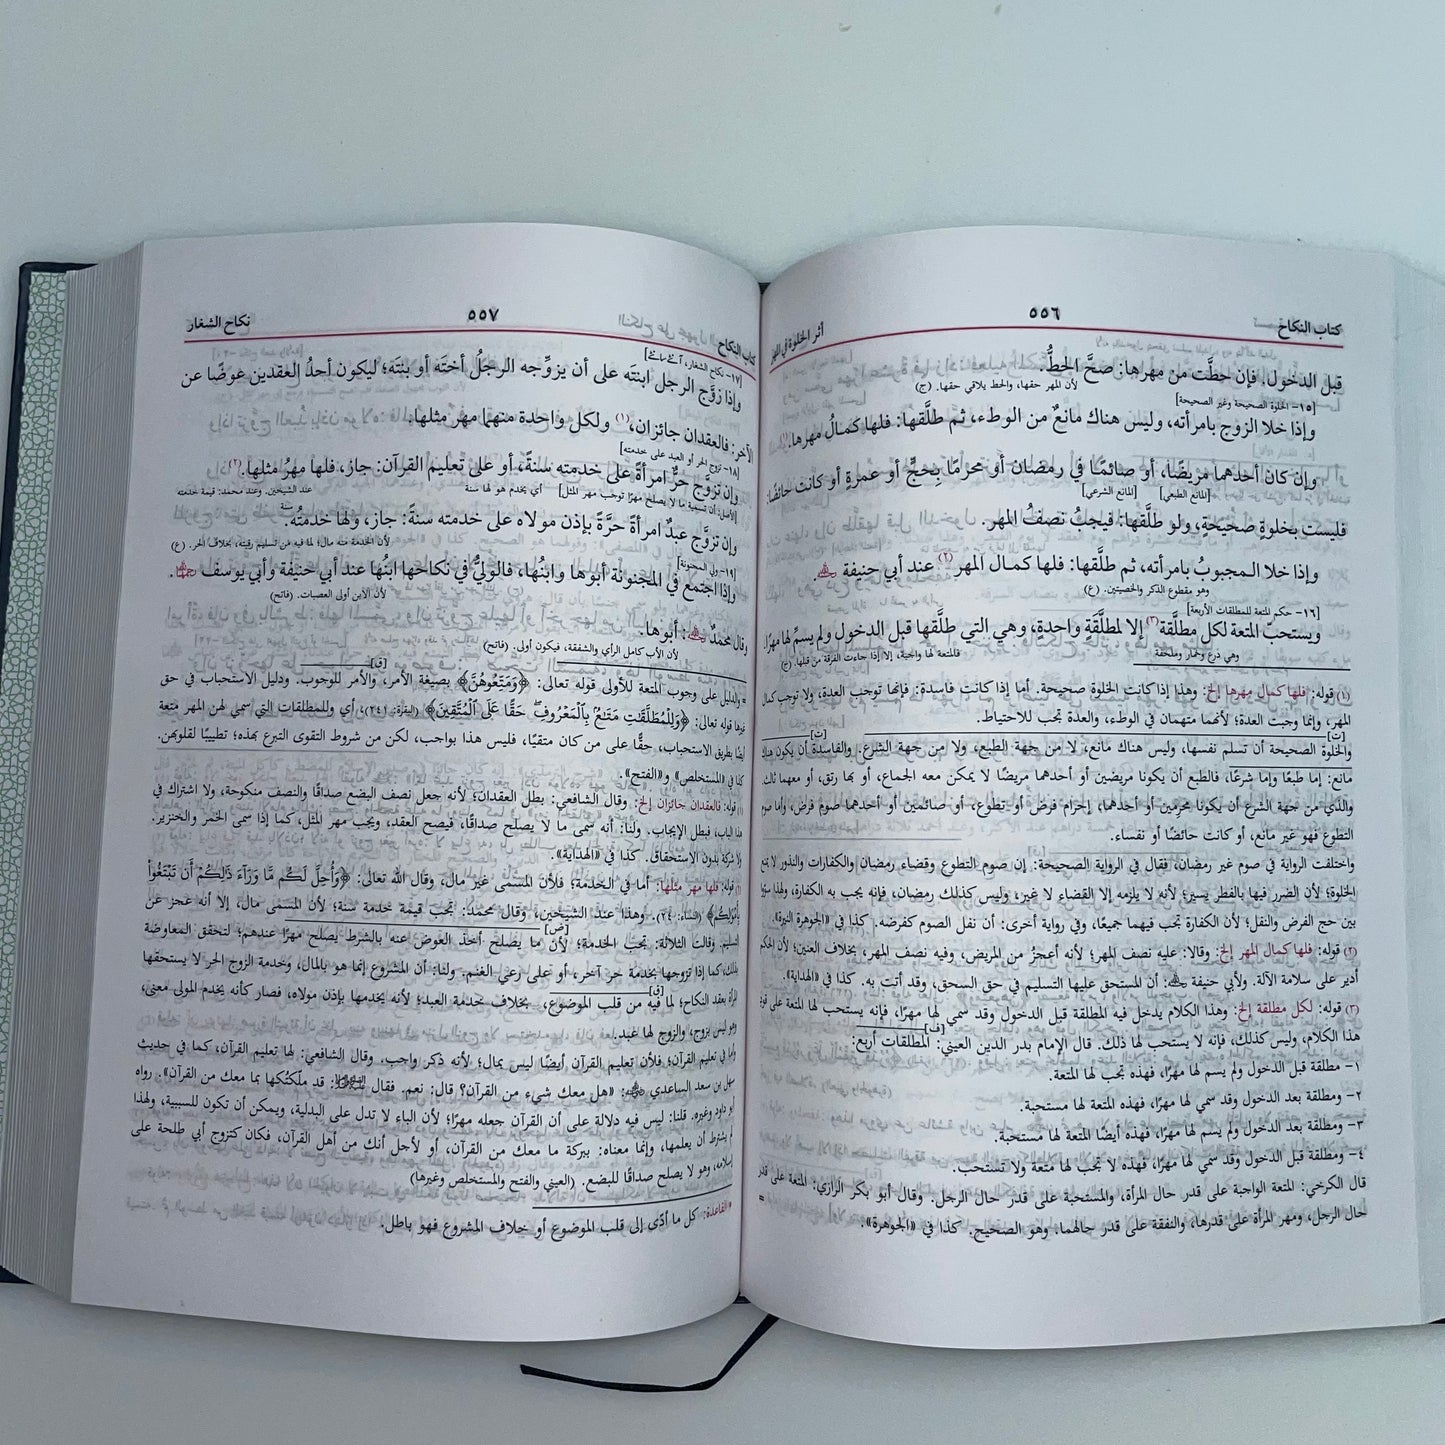 كتاب النكاح ٥٥٦ أثر الخلوة في المهر
قبل الدخول. فإن حطَّت من مهرها: صحَّ الحطُّ.
لأن المهر حقها، والحط يلاقي حقها. (ج)
[١٥- الخلوة الصحيحة وغير الصحيحة]
وإذا خلا الزوج بامرأته، وليس هناك مانعٌ من الوطء، ثم طلَّقها: فلها كمالُ مهرها.
وإن كان أحدهما مريضًا، أو صائمًا في رمضان أو محرمًا بِحجٍّ أو عمرةٍ أو كانت حائضًا:
[المانع الطبعي] [المانع الشرعي]
فليست بخلوةٍ صحيحةٍ، ولو طلَّقها: فيجبُ نصفُ المهر.
وإذا خلا المجبوبُ بامرأته، ثم طلَّقها: فلها كمال المهر(٢) عند أبي حنيفة
وهو مقطوع الذكر والخصيتين. (ع)
[١٦- حكم المتعة للمطلقات الأربعة]
ويستحبّ المتعة لكل مطلَّقة(٣) إلا لمطلَّقةٍ واحدةٍ، وهي التي طلَّقها قبل الدخول ولم يسمِّ لها مهرًا.
وهي درع وخمار وملحفة فالمتعة لها واجبة، إلا إذا جاءت الفرقة من قبلها. (ج)
(١) قوله: فلها كمال مهرها إلخ: وهذا إذا كانت الخلوة صحيحة. أما إذا كانت فاسدة: فإنها توجب العدة، ولا توجب كمال
المهر، وإنما وجبت العدة؛ لأنهما متهمان في الوطء، والعدة تجب للاحتياط.
والخلوة الصحيحة أن تسلم نفسها، وليس هناك مانع، لا من جهة الطبع، ولا من جهة الشرع. والفاسدة أن يكون هناك
مانع: إما طبعًا وإما شرعًا، فالطبع أن يكونا مريضين أو أحدهما مريضًا لا يمكن معه الجماع، أو بها رتق، أو معهما ثالث.
والذي من جهة الشرع أن يكونا محرمين أو أحدهما، إحرام فرض أو تطوع، أو صائمين أو أحدهما صوم فرض، وأما صوم
التطوع فهو غير مانع، أو كانت حائضًا أو نفساء.
واختلفت الرواية في صوم غير رمضان، فقال في الرواية الصحيحة: إن صوم التطوع وقضاء رمضان والكفارات والنذور لا يمنع
الخلوة؛ لأن الضرر فيها بالفطر يسير؛ لأنه لا يلزمه إلا القضاء لا غير، وليس كذلك رمضان، فإنه يجب به الكفارة، ولهذا سوّى
بين حج الفرض والنفل؛ لأن الكفارة تجب فيهما جميعًا، وفي رواية أخرى: أن نفل الصوم كفرضه. كذا في «الجوهرة النيرة».
(٢) قوله: فلها كمال المهر إلخ: وقالا: عليه نصف المهر؛ لأنه أعجزُ من المريض، وفيه نصف المهر، بخلاف العنين؛ لأن الحكم
أدير على سلامة الآلة. ولأبي حنيفة: أن المستحق عليها التسليم في حق السحق، وقد أتت به. كذا في «الهداية».
(٣) قوله: لكل مطلقة إلخ: وهذا الكلام يدخل فيه المطلقة قبل الدخول وقد سمي لها مهرًا، فإنه يستحب لها المتعة على قود
هذا الكلام، وليس كذلك، فإنه لا يستحب لها ذلك. قال الإمام بدر الدين العيني: المطلقات أربع:
١- مطلقة قبل الدخول ولم يسم لها مهرًا، فهذه تجب لها المتعة.
٢- ومطلقة بعد الدخول وقد سمي لها مهرًا، فهذه المتعة لها مستحبة.
٣- ومطلقة بعد الدخول ولم يسم لها مهرًا، فهذه أيضًا المتعة لها مستحبة.
٤- ومطلقة قبل الدخول وقد سمي لها مهرًا، فهذه لا تجب لها متعة ولا تستحب.
قال الكرخي: المتعة الواجبة على قدر حال المرأة، والمستحبة على قدر حال الرجل. وقال أبو بكر الرازي: المتعة على قدر
حال الرجل، ومهر المرأة على قدرها، والنفقة على قدر حالهما. وهو الصحيح. كذا في «الجوهرة». =
كتاب النكاح ٥٥٧ نكاح الشغار
[١٧- نكاح الشغار،
وإذا زوَّج الرجل ابنتَه على أن يزوِّجه الرجلُ أختَه أو بنتَه؛ ليكون أحدُ العقدين عوضًا عن
الآخر: فالعقدان جائزان،(١) ولكل واحدة منهما مهر مثلها.
[١٨- تزوج الحر أو العبد على خدمته]
وإن تزوَّج حرٌّ امرأةً على خدمته سنةً، أو على تعليم القرآن: جاز، فلها مهرُ مثلها.(٢)
[الأصل: أن تسمية ما لا يصلح مهرًا توجب مهر المثل] أي يخدم هو لها سنة عند الشيخين. وعند محمد: قيمة خدمته سنة
وإن تزوَّج عبدٌ امرأةً حرَّةً بإذن مولاه على خدمته سنةً: جاز، ولها خدمتُه.
لأن الخدمة منه مال؛ لما فيه من تسليم رقبته، بخلاف الحر. (ع)
[١٩- ولي المجنونة]
وإذا اجتمع في المجنونة أبوها وابنُها، فالوليُّ في نكاحها ابنُها عند أبي حنيفة وأبي يوسف
لأن الابن أولى العصبات. (فاتح)
وقال محمدٌ: أبوها.
لأن الأب كامل الرأي والشفقة، فيكون أولى. (فاتح)
= والدليل على وجوب المتعة للأولى قوله تعالى: ﴿وَمَتِّعُوهُنَّ﴾ بصيغة الأمر، والأمر للوجوب. ودليل الاستحباب في حق
غيرها قوله تعالى: ﴿وَلِلْمُطَلَّقَٰتِ مَتَٰعٌۢ بِٱلْمَعْرُوفِ ۖ حَقًّا عَلَى ٱلْمُتَّقِينَ﴾ (البقرة: ٢٤١)، أي وللمطلقات التي سمي لهن المهر متعة
أيضًا بطريق الاستحباب، حقًّا على من كان متقيًا، فليس هذا بواجب، لكن من شروط التقوى التبرع بهذه؛ تطييبًا لقلوبهن.
كذا في «المستخلص» و«الفتح».
(١) قوله: فالعقدان جائزان إلخ: وقال الشافعي: بطل العقدان؛ لأنه جعل نصف البضع صداقًا والنصف منكوحة، ولا اشتراك في
هذا الباب، فبطل الإيجاب. ولنا: أنه سمى ما لا يصلح صداقًا، فيصح العقد، ويجب مهر المثل، كما إذا سمى الخمر والخنزير.
ولا شركة بدون الاستحقاق. كذا في «الهداية».
(٢) قوله: فلها مهر مثلها: أما في الخدمة؛ فلأن المسمى غير مال، وقال الله تعالى: ﴿وَأُحِلَّ لَكُم مَّا وَرَآءَ ذَٰلِكُمْ أَن تَبْتَغُواْ
بِأَمْوَٰلِكُم﴾ (النساء: ٢٤). وهذا عند الشيخين، وقال محمد: تجب قيمة خدمة سنة؛ لأن المسمى مال، إلا أنه عجز عن
التسليم. وقالت الثلاثة: تجب الخدمة؛ لأن ما يصلح أخذ العوض عنه بالشرط يصلح مهرًا عندهم؛ لتحقق المعاوضة
بذلك، كما إذا تزوجها بخدمة حر آخر، أو على رعي الغنم. ولنا: أن المشروع إنما هو بالمال، وخدمة الزوج الحر لا يستحقها
المرأة بعقد النكاح؛ لما فيه من قلب الموضوع، بخلاف خدمة العبد؛ لأنه يخدمها بإذن مولاه، فصار كأنه يخدم المولى معنى،
وهو ليس بزوج، والزوج لها عبد.
وأما في تعليم القرآن؛ فلأن تعليم القرآن أيضًا ليس بمال؛ لأنه ذكر واجب. وقال الشافعي: لها تعليم القرآن، كما في حديث
سهل بن سعد الساعدي: «هل معك شيء من القرآن؟ قال: نعم. فقال: قد ملّكتُكها بما معك من القرآن». رواه
أبو داود وغيره. قلنا: ليس فيه دلالة على أن القرآن جعله مهرًا؛ لأن الباء لا تدل على البدلية، ويمكن أن تكون للسببية، ولهذا
لم يشترط أن يعلمها، وإنما معناه: ببركة ما معك من القرآن، أو لأجل أنك من أهل القرآن، فكان كتزوج أبي طلحة على
إسلامه، وهو لا يصلح صداقًا للبضع. (العيني والفتح والمستخلص وغيرها)
* القاعدة: كل ما أدّى إلى قلب الموضوع أو خلاف المشروع فهو باطل.